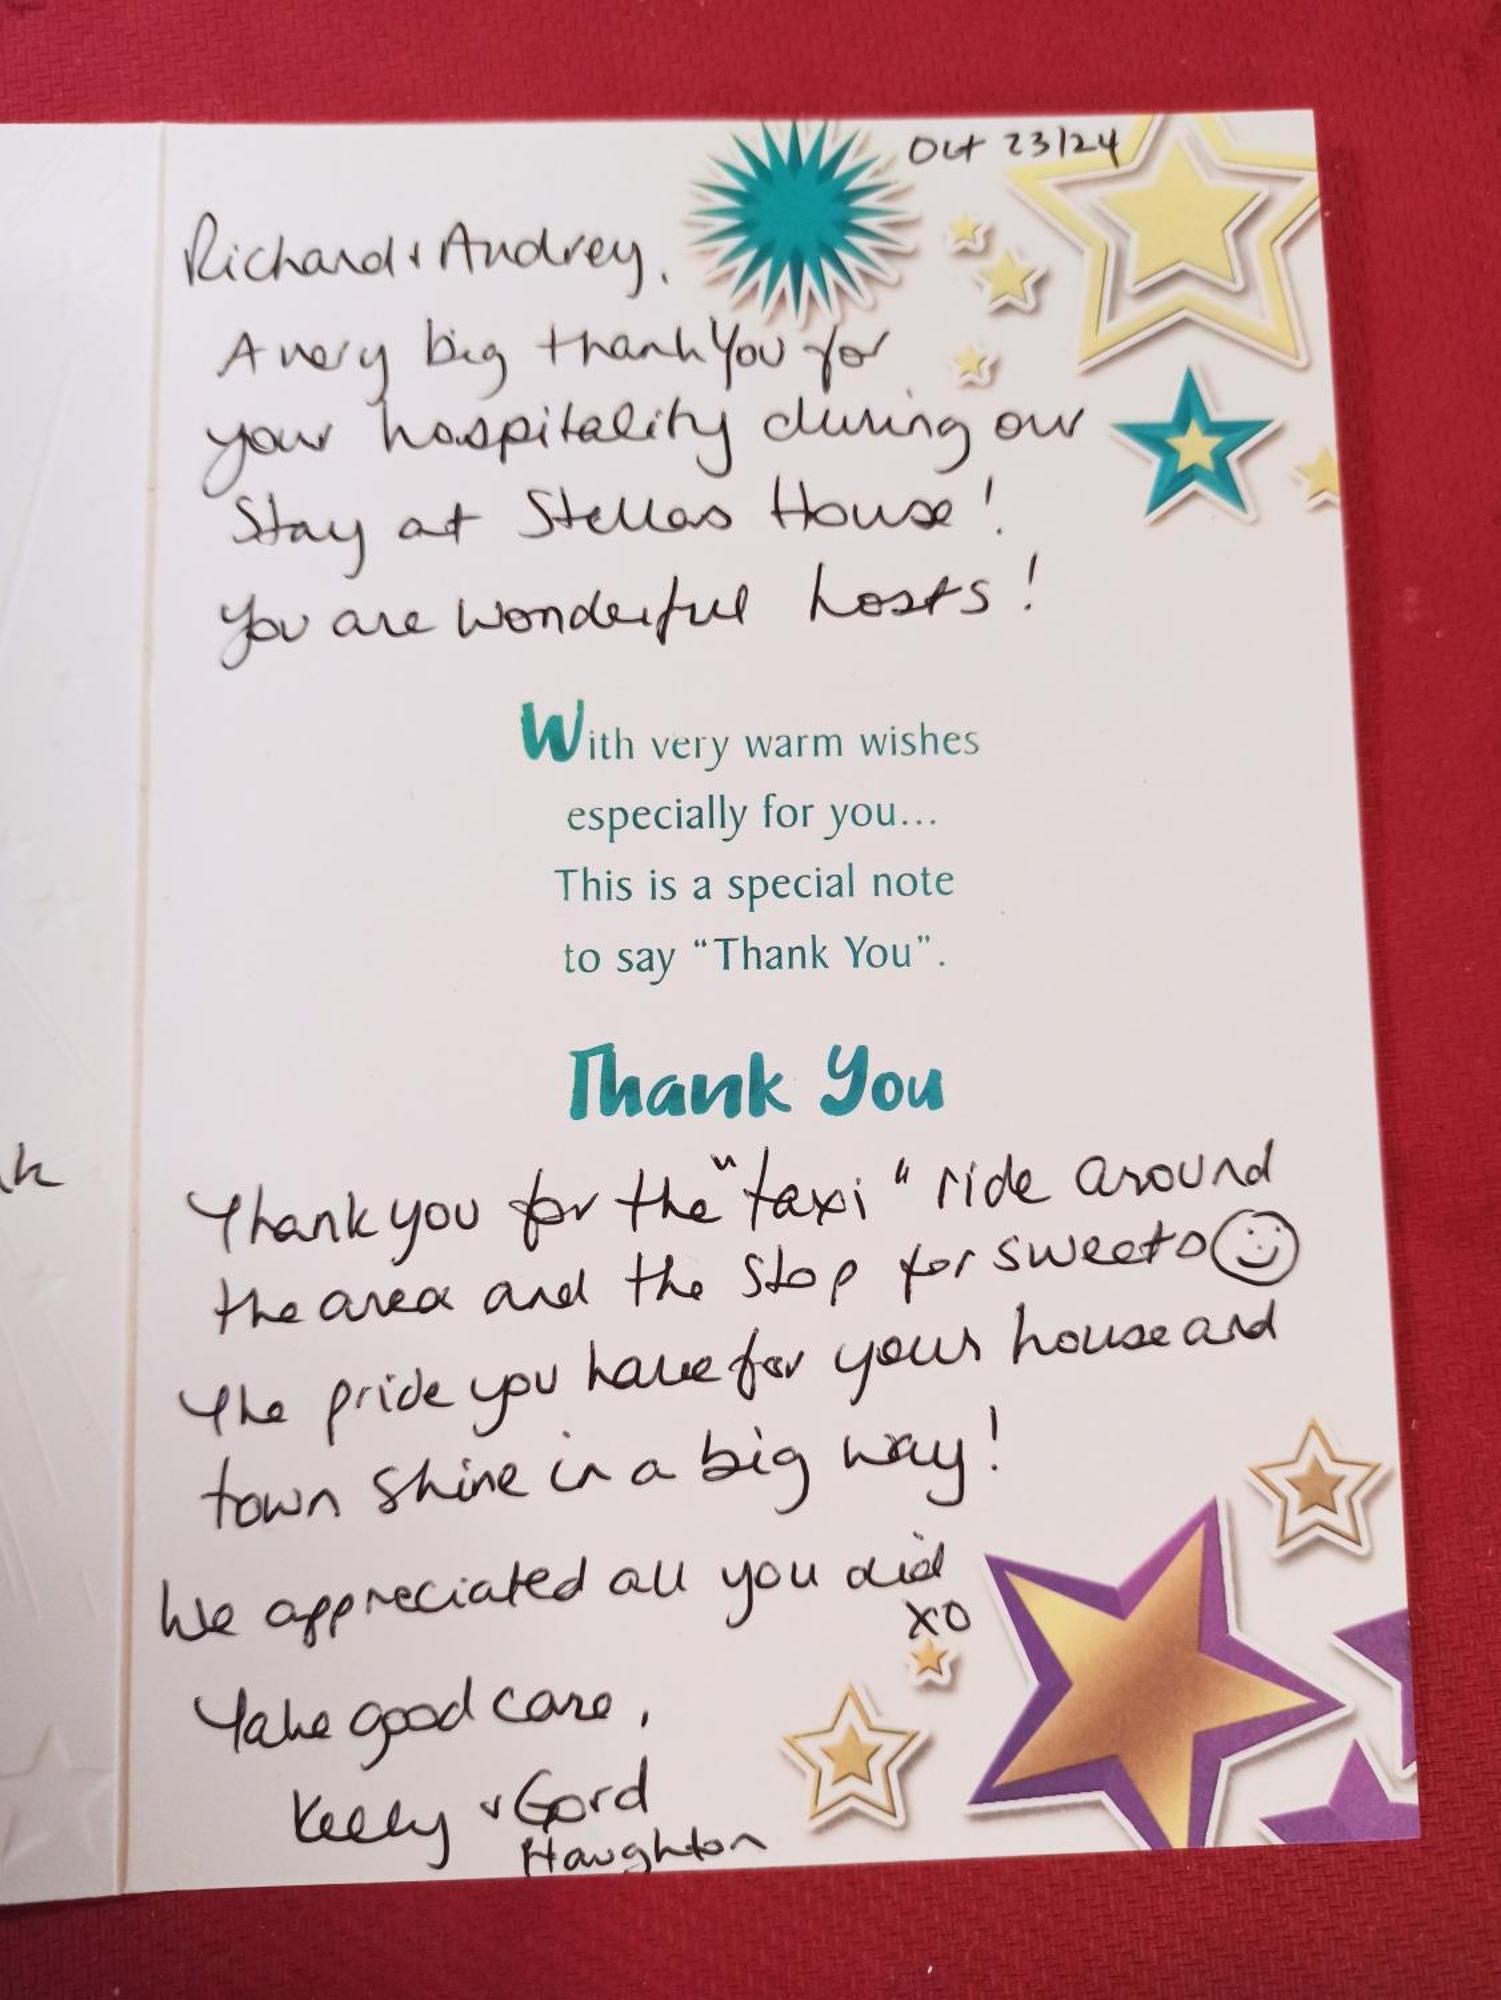 Oct 23/24
Richard & Audrey,
A very big thank You for
your hospitality during our
Stay at Stellas House!
You are wonderful hosts!
With very warm wishes
especially for you...
This is a special note
to say “Thank You”.
Thank You
Thank you for the "taxi" ride around
the area and the stop for sweets ☺
The pride you have for your house and
town shine in a big way!
We appreciated all you did
XO
Take good care,
Kelly & Gord
Haughton